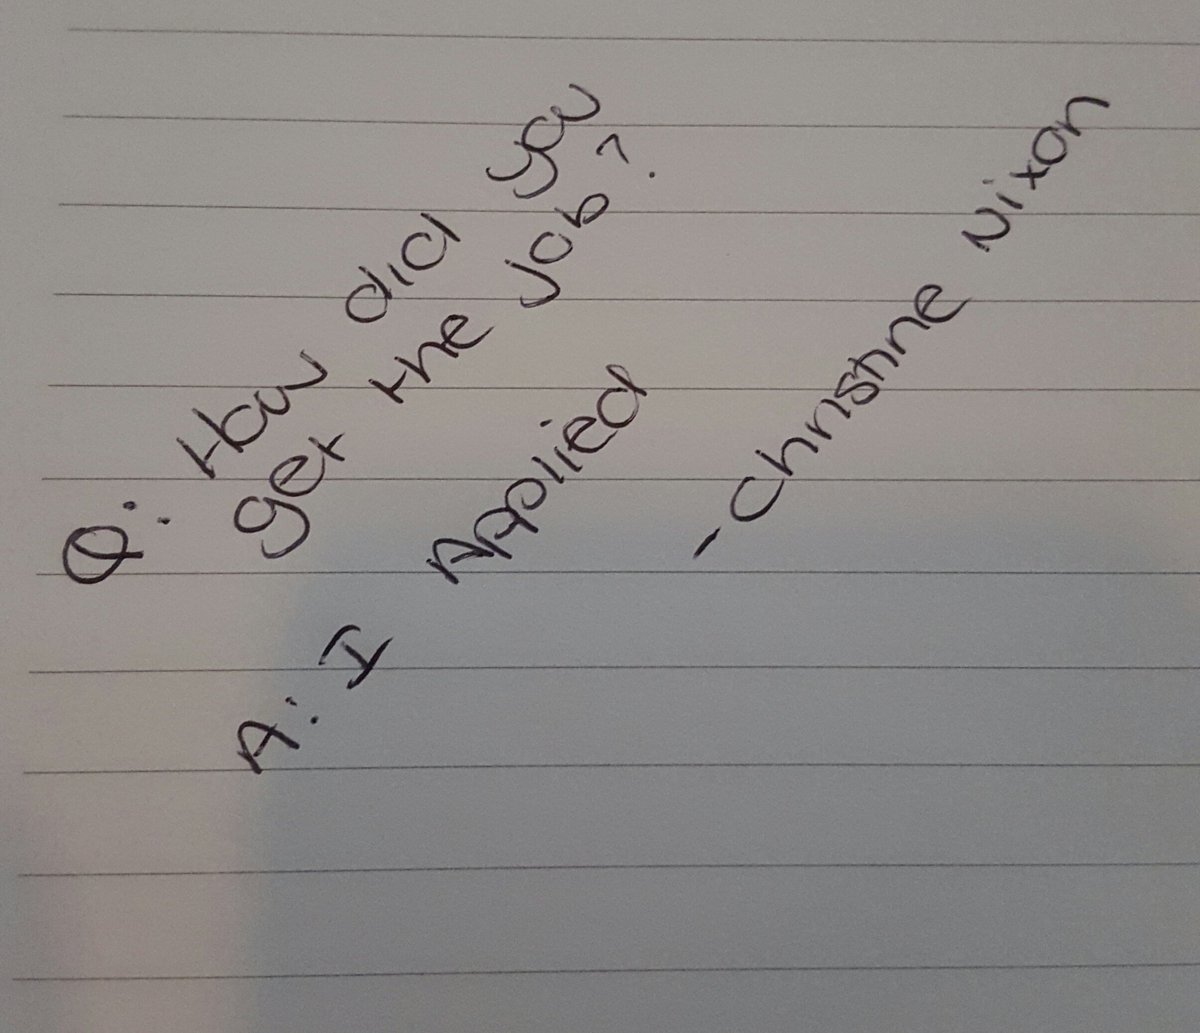 Q: How did you
get the job?
A: I Applied
- Christine Nixon